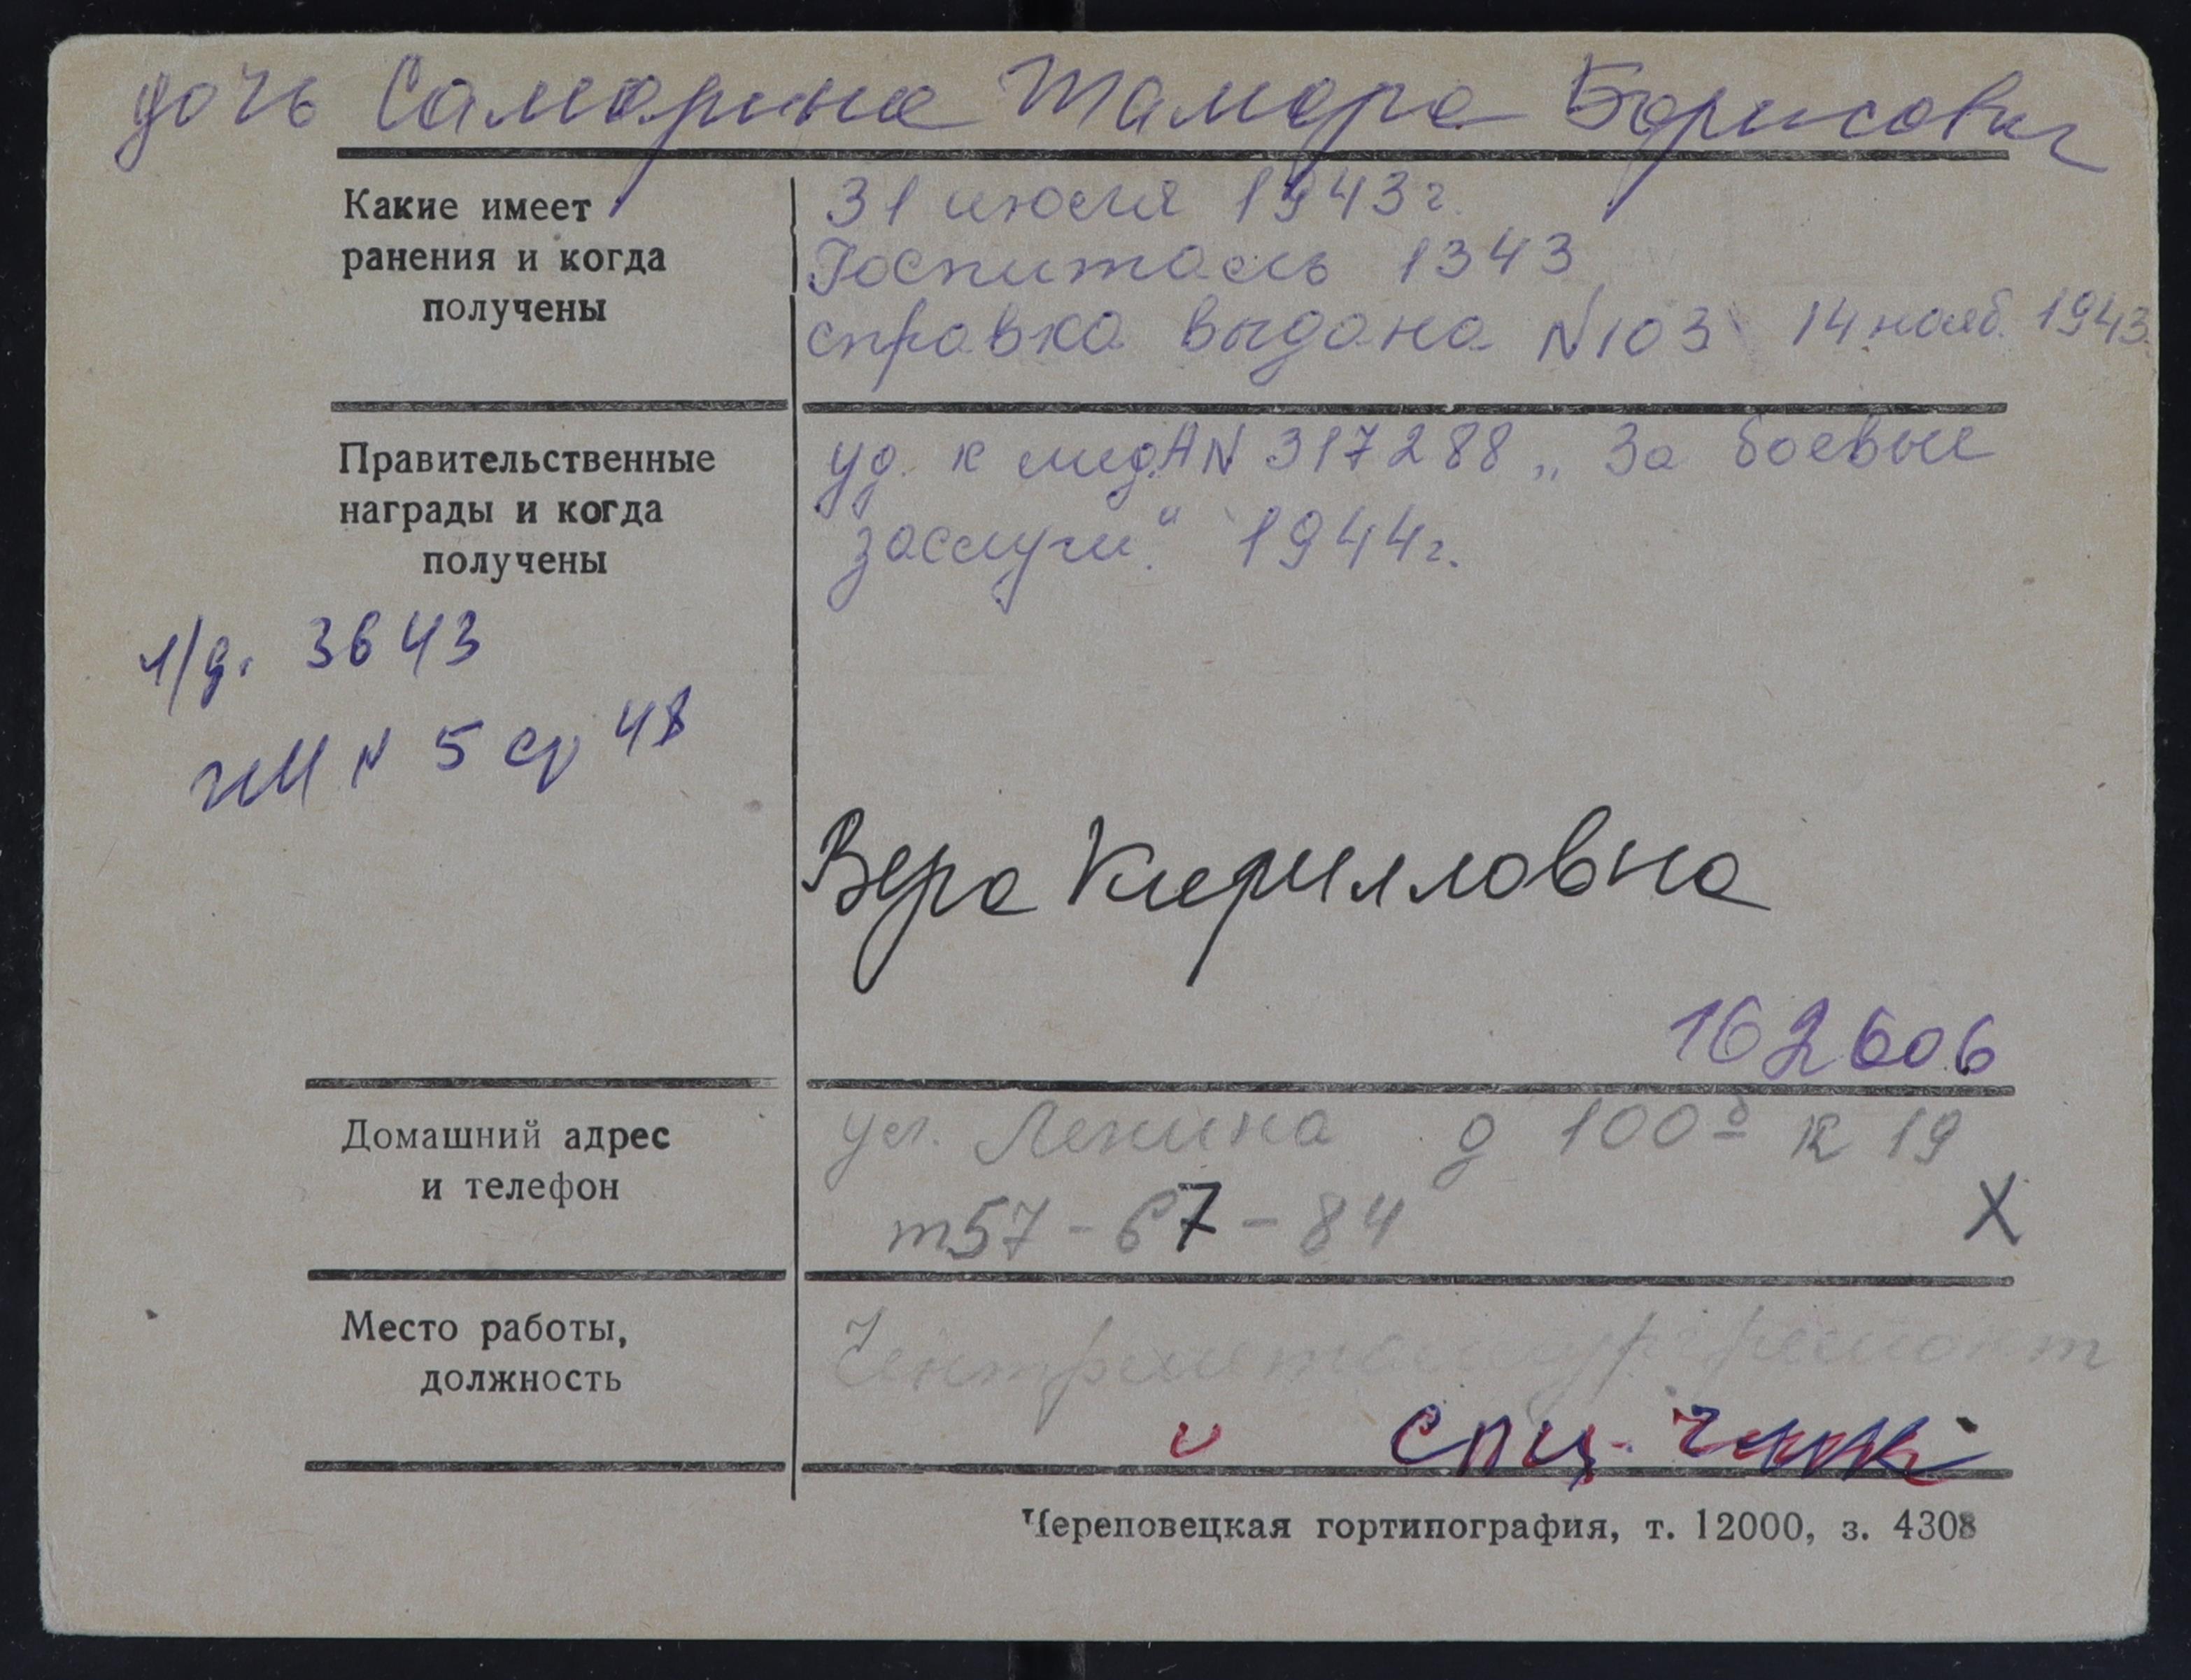 дочь Саморина Тамара Борисовн
Какие имеет
ранения и когда
получены
31 июля 1943 г.
Госпиталь 1343
справка выдана N 103 14 нояб. 1943.
Правительственные
награды и когда
получены
уд. к мед. А N 317288 „За боевые
заслуги". 1944 г.
л/д. 3643
N 5 48
Вера Кирилловна
162606
Домашний адрес
и телефон
ул. Ленина д 100б к 19
т 57-67-84
X
Место работы,
должность
и спец.
Череповецкая гортипография, т. 12000, з. 4308